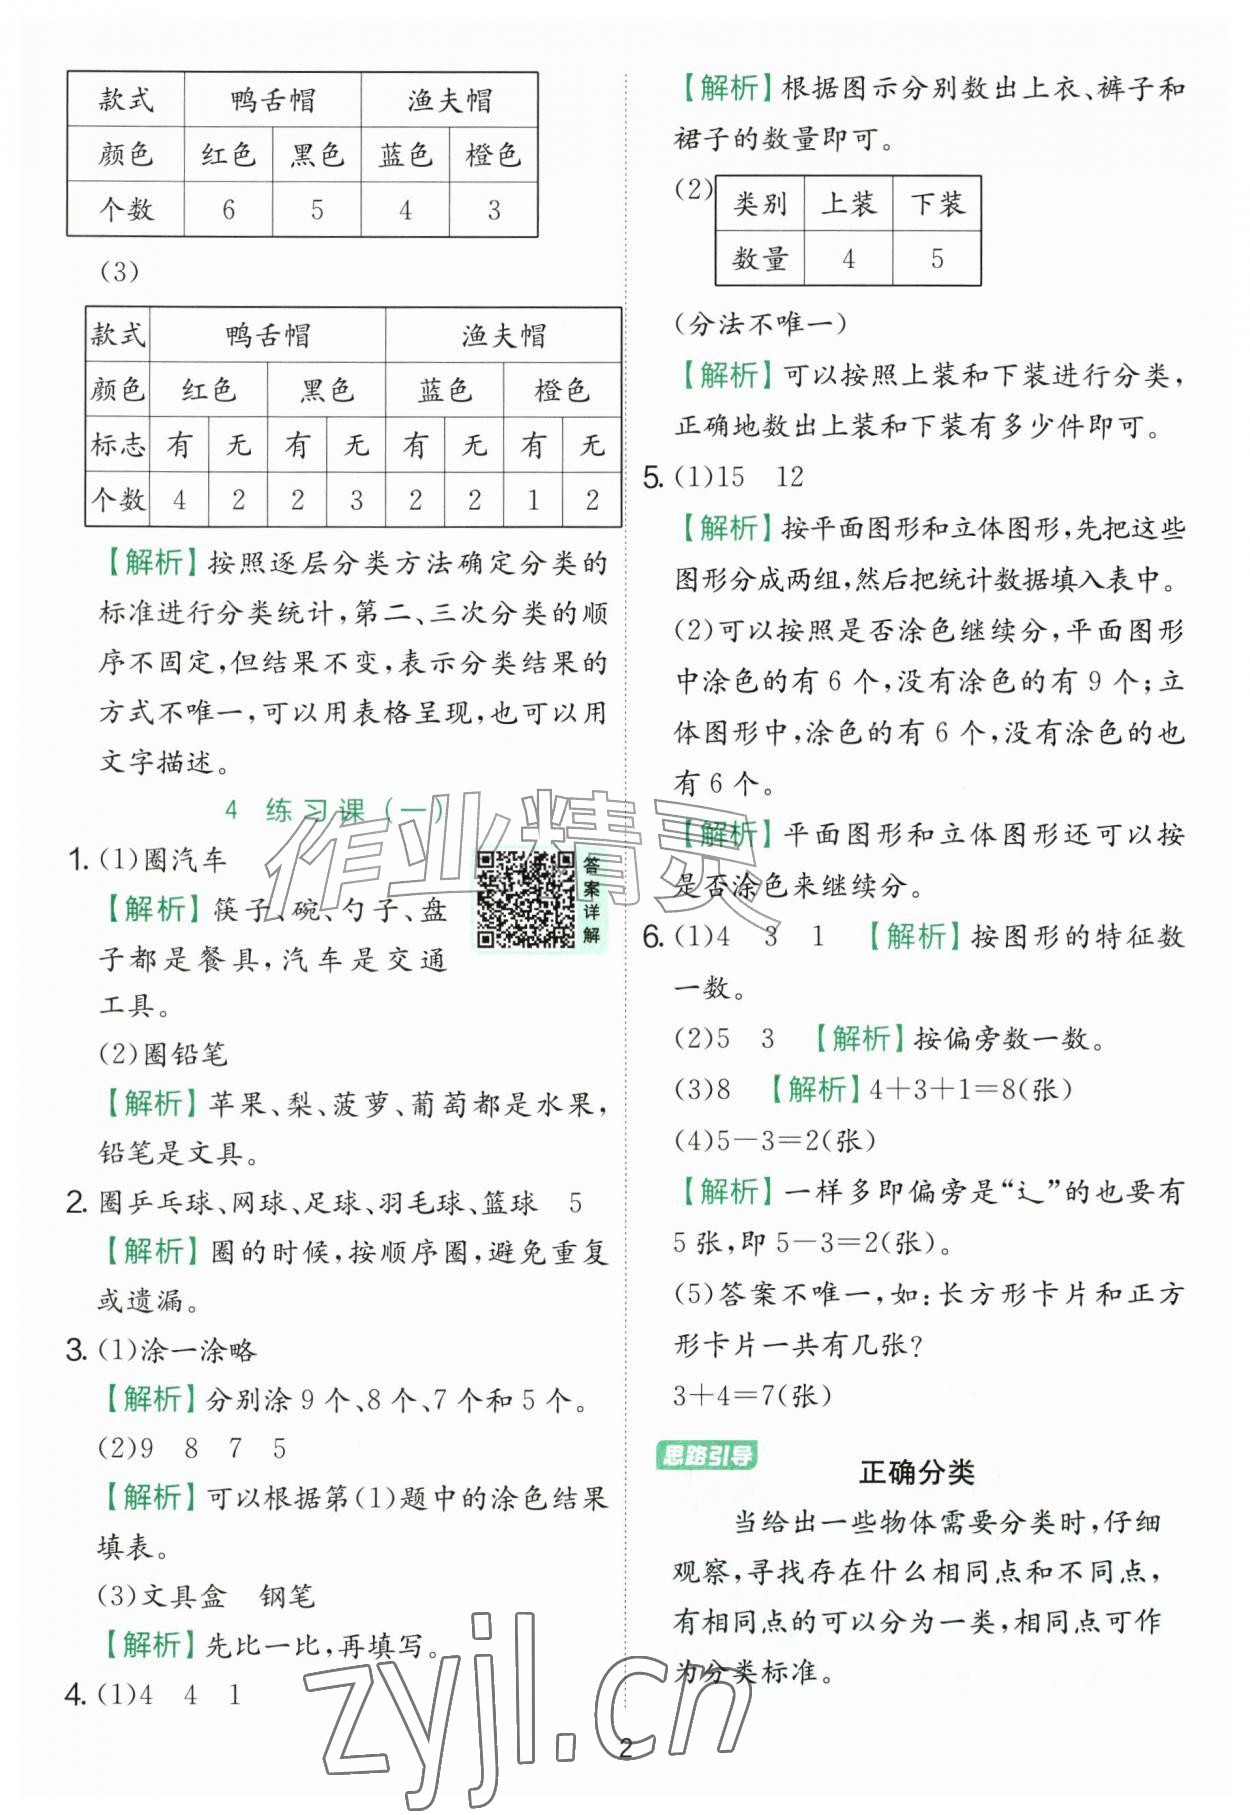 款式 鸭舌帽 渔夫帽
颜色 红色 黑色 蓝色 橙色
个数 6 5 4 3
(3)
款式 鸭舌帽 渔夫帽
颜色 红色 黑色 蓝色 橙色
标志 有 无 有 无 有 无 有 无
个数 4 2 2 3 2 2 1 2
【解析】按照逐层分类方法确定分类的
标准进行分类统计,第二、三次分类的顺
序不固定,但结果不变,表示分类结果的
方式不唯一,可以用表格呈现,也可以用
文字描述。
4 练习课(一)
1. (1)圈汽车
答案详解
【解析】筷子、碗、勺子、盘
子都是餐具,汽车是交通
工具。
(2)圈铅笔
【解析】苹果、梨、菠萝、葡萄都是水果,
铅笔是文具。
2. 圈乒乓球、网球、足球、羽毛球、篮球 5
【解析】圈的时候,按顺序圈,避免重复
或遗漏。
3. (1)涂一涂略
【解析】分别涂9个、8个、7个和5个。
(2)9 8 7 5
【解析】可以根据第(1)题中的涂色结果
填表。
(3)文具盒 钢笔
【解析】先比一比,再填写。
4. (1)4 4 1
【解析】根据图示分别数出上衣、裤子和
裙子的数量即可。
(2)
类别 上装 下装
数量 4 5
(分法不唯一)
【解析】可以按照上装和下装进行分类,
正确地数出上装和下装有多少件即可。
5. (1)15 12
【解析】按平面图形和立体图形,先把这些
图形分成两组,然后把统计数据填入表中。
(2)可以按照是否涂色继续分,平面图形
中涂色的有6个,没有涂色的有9个;立
体图形中,涂色的有6个,没有涂色的也
有6个。
【解析】平面图形和立体图形还可以按
是否涂色来继续分。
6. (1)4 3 1 【解析】按图形的特征数
一数。
(2)5 3 【解析】按偏旁数一数。
(3)8 【解析】4+3+1=8(张)
(4)5-3=2(张)
【解析】一样多即偏旁是“辶”的也要有
5张,即5-3=2(张)。
(5)答案不唯一,如:长方形卡片和正方
形卡片一共有几张?
3+4=7(张)
思路引导
正确分类
当给出一些物体需要分类时,仔细
观察,寻找存在什么相同点和不同点,
有相同点的可以分为一类,相同点可作
为分类标准。
2
作业精灵
zyjl.cn